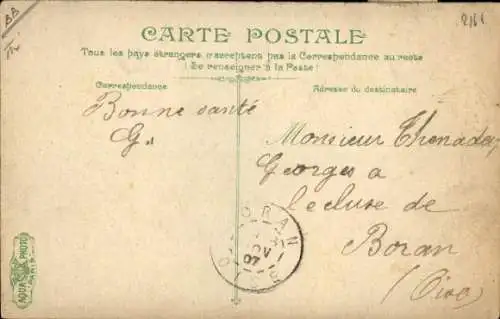 BB
CARTE POSTALE
Tous les pays étrangers n'acceptent pas la Correspondance au recto
(Se renseigner à la Poste)
Correspondance
Adresse du destinataire
Bonne santé
G.
Monsieur
Georges a
lecluse de
Boran
(Oise)
BORAN
07
OISE
AQUA PHOTO
PARIS